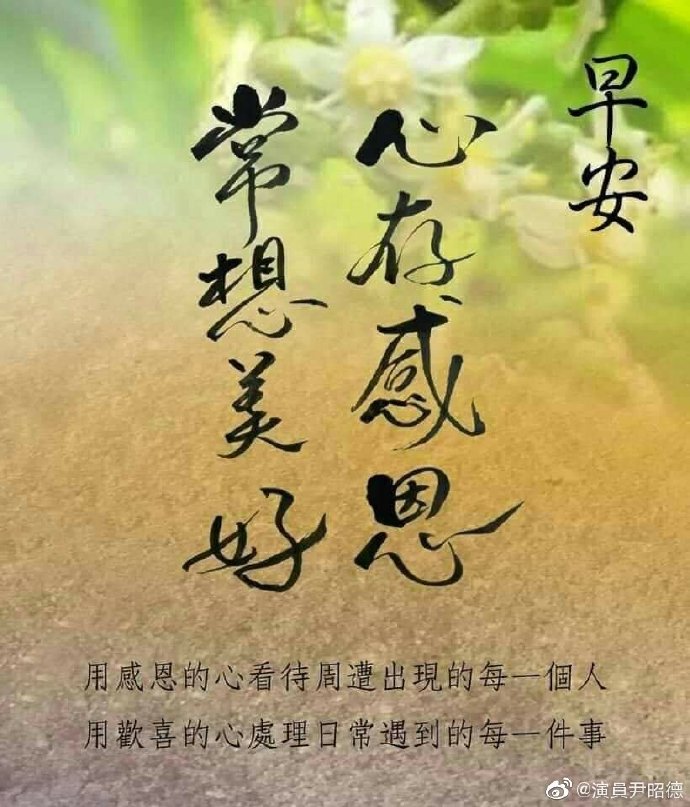 早安
心存感恩
常想美好
用感恩的心看待周遭出現的每一個人
用歡喜的心處理日常遇到的每一件事
@演員尹昭德